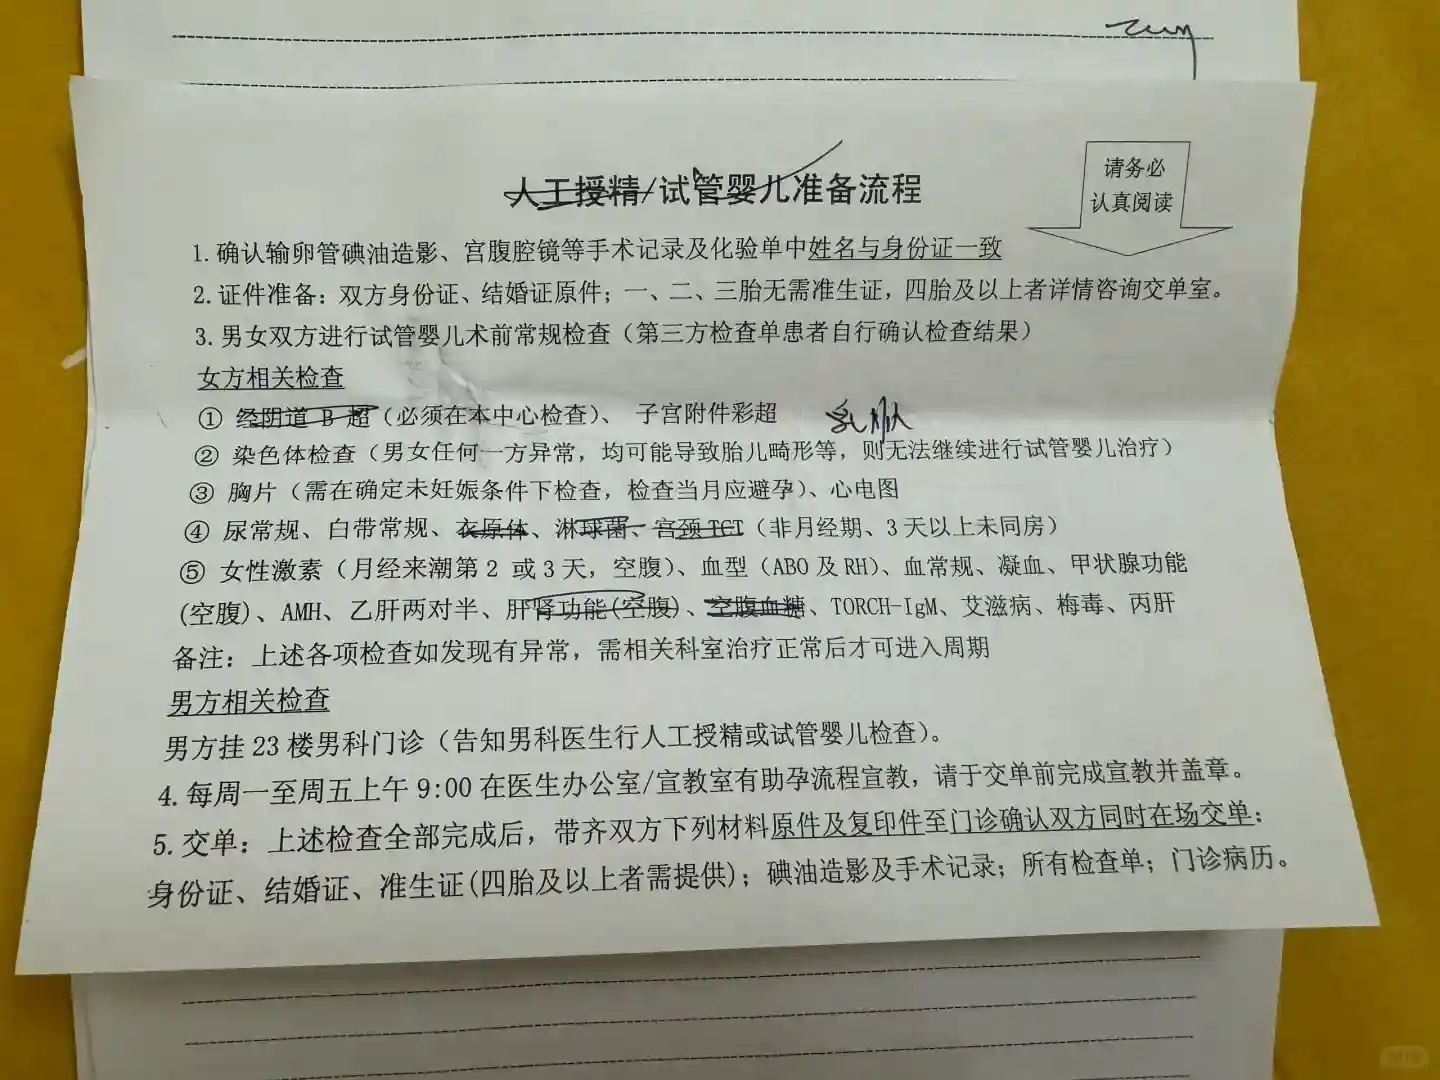 请务必
认真阅读
人工授精/试管婴儿准备流程
1. 确认输卵管碘油造影、宫腹腔镜等手术记录及化验单中姓名与身份证一致
2. 证件准备：双方身份证、结婚证原件；一、二、三胎无需准生证，四胎及以上者详情咨询交单室。
3. 男女双方进行试管婴儿术前常规检查（第三方检查单患者自行确认检查结果）
女方相关检查
① 经阴道 B 超（必须在本中心检查）、 子宫附件彩超 乳腺
② 染色体检查（男女任何一方异常，均可能导致胎儿畸形等，则无法继续进行试管婴儿治疗）
③ 胸片（需在确定未妊娠条件下检查，检查当月应避孕）、心电图
④ 尿常规、白带常规、衣原体、淋球菌、宫颈 TCT（非月经期、3 天以上未同房）
⑤ 女性激素（月经来潮第 2 或 3 天，空腹）、血型（ABO 及 RH）、血常规、凝血、甲状腺功能
(空腹)、AMH、乙肝两对半、肝肾功能(空腹)、空腹血糖、TORCH-IgM、艾滋病、梅毒、丙肝
备注：上述各项检查如发现有异常，需相关科室治疗正常后才可进入周期
男方相关检查
男方挂 23 楼男科门诊（告知男科医生行人工授精或试管婴儿检查）。
4. 每周一至周五上午 9:00 在医生办公室/宣教室有助孕流程宣教，请于交单前完成宣教并盖章。
5. 交单：上述检查全部完成后，带齐双方下列材料原件及复印件至门诊确认双方同时在场交单；
身份证、结婚证、准生证(四胎及以上者需提供)；碘油造影及手术记录；所有检查单；门诊病历。